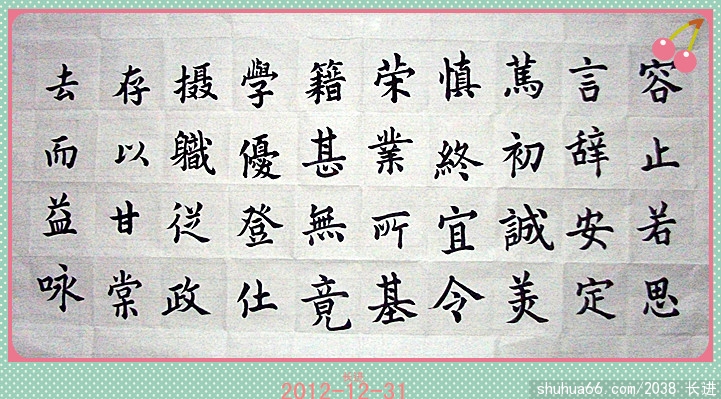 容止若思
言辞安定
篤初誠美
慎終宜令
荣業所基
籍甚無竟
學優登仕
摄職従政
存以甘棠
去而益咏
长进
2012-12-31
shuhua66.com/2038 长进